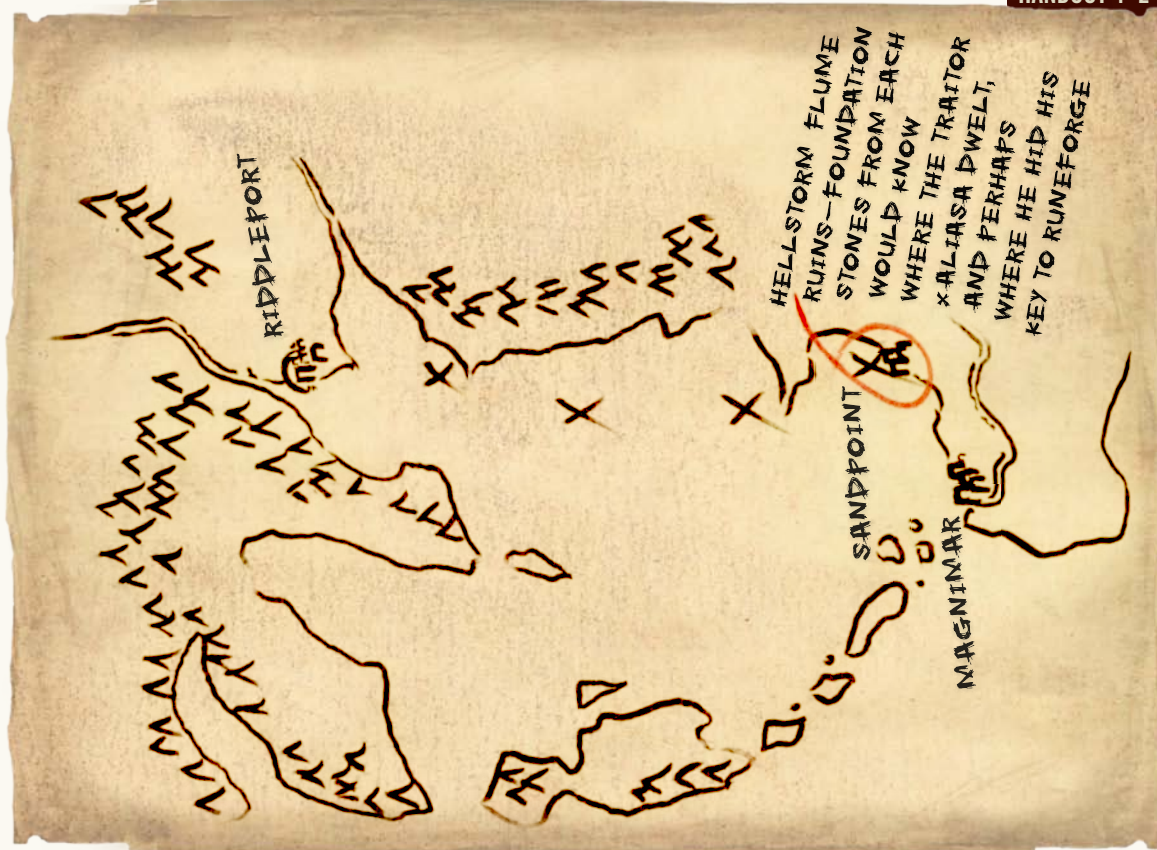 RIDDLEPORT
HELLSTORM FLUME
RUINS–FOUNDATION
STONES FROM EACH
WOULD KNOW
WHERE THE TRAITOR
XALIASA DWELT,
AND PERHAPS
WHERE HE HID HIS
KEY TO RUNEFORGE
SANDPOINT
MAGNIMAR